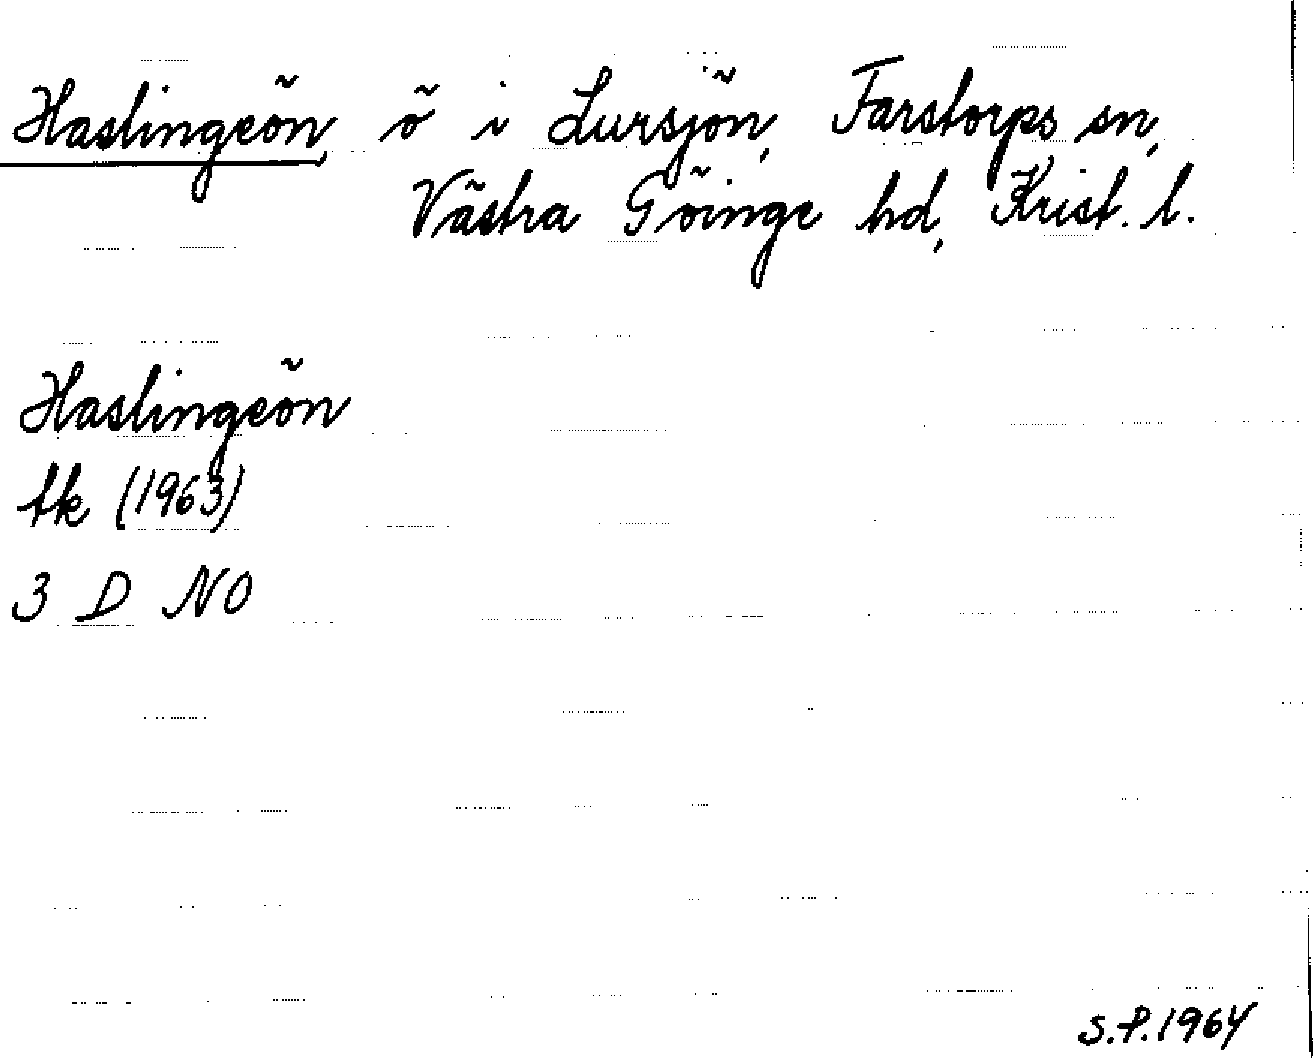 Haslingeön, ö i Lursjön, Farstorps sn,
Västra Göinge hd, Krist. l.
Haslingeön
tk (1963)
3 D NO
S.P. 1964